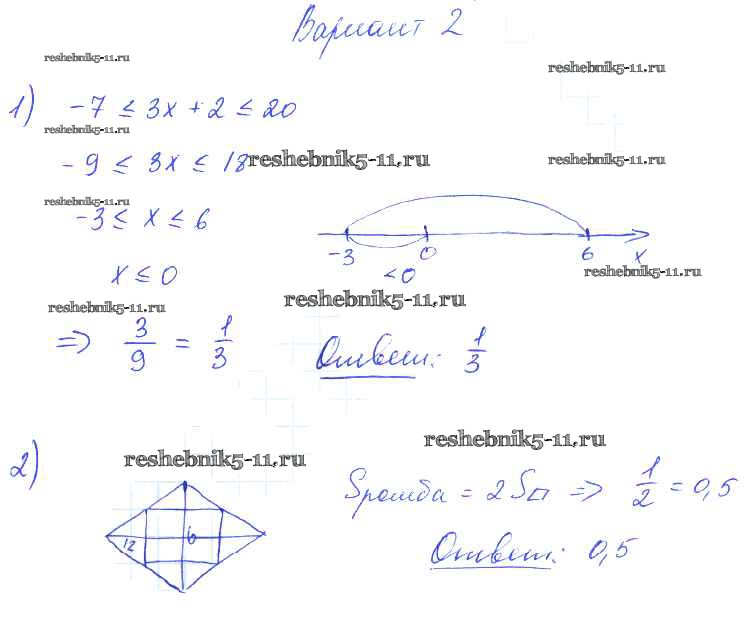 Вариант 2
reshebnik5-11.ru
reshebnik5-11.ru
1) -7 ≤ 3x + 2 ≤ 20
reshebnik5-11.ru
-9 ≤ 3x ≤ 18
reshebnik5-11.ru
reshebnik5-11.ru
reshebnik5-11.ru
-3 ≤ x ≤ 6
-3 0 6 x
<0
x ≤ 0
reshebnik5-11.ru
reshebnik5-11.ru
reshebnik5-11.ru
=> 3/9 = 1/3 Ответ: 1/3
reshebnik5-11.ru
2)
reshebnik5-11.ru
Sромба = 2S□ => 1/2 = 0,5
12 6
Ответ: 0,5